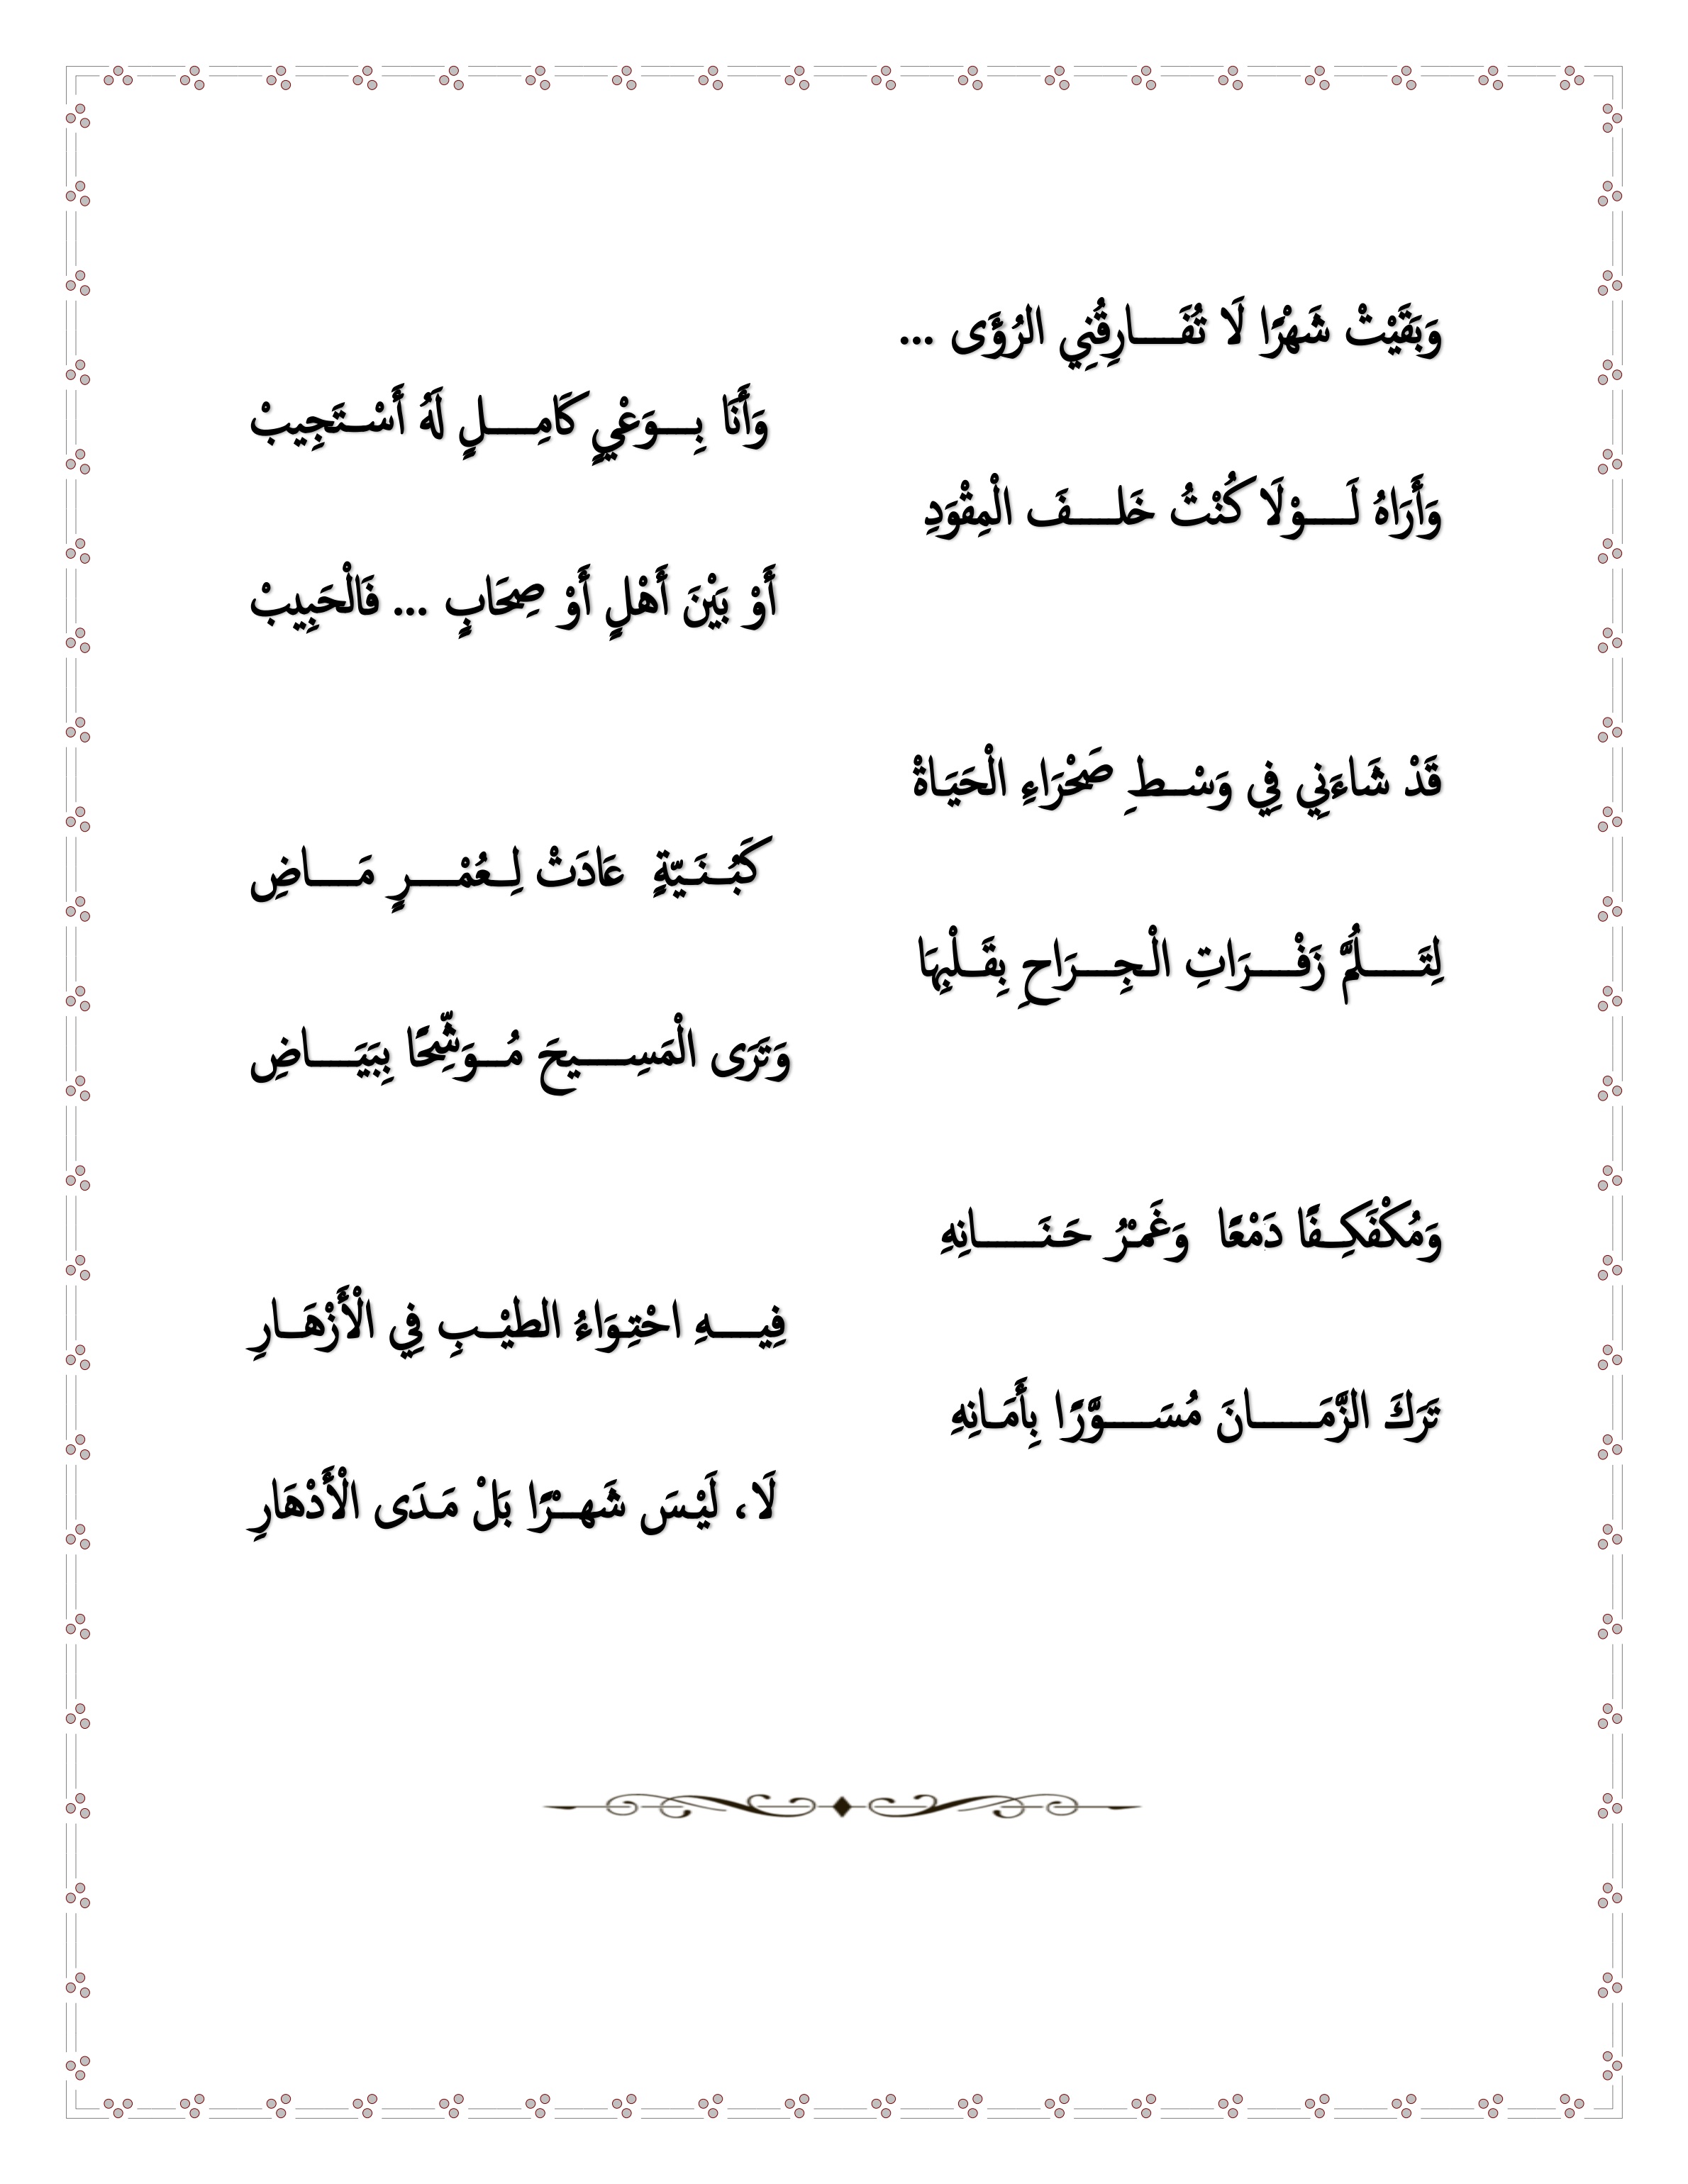 وَبَقَيْتْ شَهْرًا لَا تُفَـــارِقُنِي الرُؤَى ...
وَأَنَا بِـــوَعْيٍ كَامِـــلٍ لَهُ أَسْـتَجِيبْ
وَأَرَاهُ لَـــوْلَا كُنْتُ خَلـــفَ الْمِقْوَدِ
أَوْ بَيْنَ أَهْلٍ أَوْ صِحَابٍ ... فَالْحَبِيبْ
قَدْ شَاءَنِي فِي وَسْـطِ صَحْرَاءِ الْحَيَـاةْ
كَبُـنَـيّةٍ عَادَتْ لِـعُمْـــرٍ مَـــاضِ
لِتَـــلُمَّ زَفْـــرَاتِ الْـجِـــرَاحِ بِقَـلْبِهَا
وَتَرَى الْمَسِـــيحَ مُــوَشِّحًا بِبَيَـــاضِ
وَمُكْفَكِـفًا دَمْعًا وَغَمْرُ حَـنَـــانِهِ
فِيـــهِ احْتِـوَاءُ الطيْـبِ فِي الْأَزْهَـارِ
تَرَكَ الزَّمَـــانَ مُسَـــوَّرًا بِأَمَـانِهِ
لَا، لَيْـسَ شَهـْرًا بَلْ مَـدَى الْأَدْهَارِ